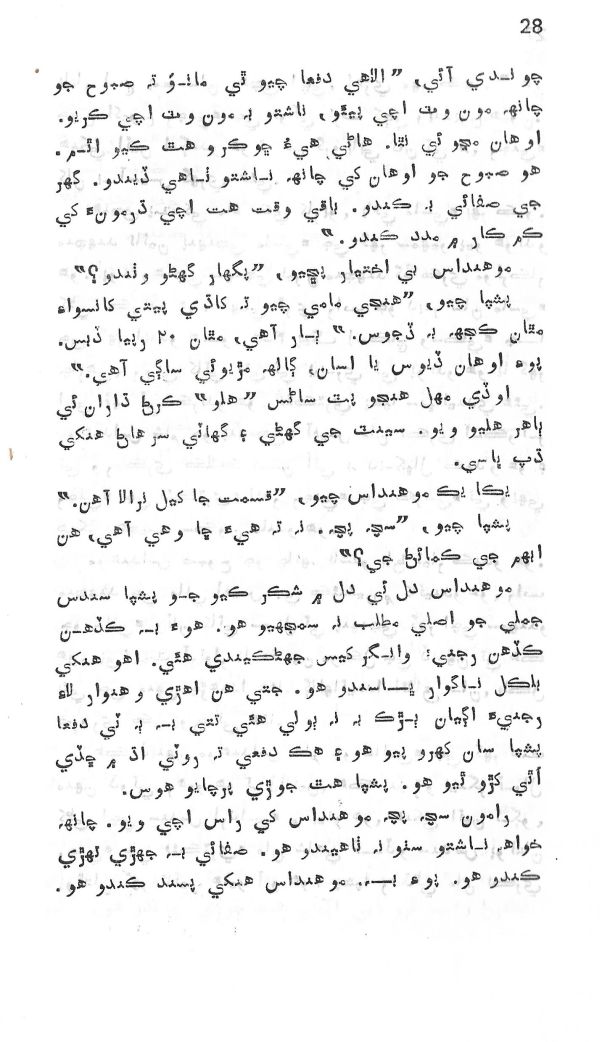 28
چونـدي آئي، ”الاهي دفعا چيو ٿي مانـوَ ته صبوح جو
چانهه مون وٽ اچي پيئو، ناشتو به مون وٽ اچي ڪريو.
اوهان مڃوئي نٿا. هاڻي هيءُ ڇوڪرو هٿ ڪيو اٿـم.
هو صبوح جو اوهان کي چانهه نـاشتو ٺـاهي ڏيندو. گهر
جي صفائي به ڪندو. باقي وقت هت اچي ڌرمونءَ کي
ڪم ڪار ۾ مدد ڪندو.“
موهنداس بي اختيار پڇيو، ”پگهار گهڻو وٺندو؟“
پشپا چيو، ”هنجي مامي چيو ته کاڌي پيتي کانسواءِ
مٿان ڪجهه به ڏجوس.“ ٻـار آهي، مٿان ۲۰ رپيا ڏبس.
پوءِ اوهان ڏيوس يا اسان، ڳالهه مڙيوئي ساڳي آهي.“
اوڏي مهل هنجو پٽ ساڻس ”هلو“ ڪرڻ ڌاران ئي
ٻاهر هليو ويو. سينٽ جي گهڻي ۽ گهاٽي سرهاڻ هنکي
ڏپ ڀاسي.
يڪا يڪ موهنداس چيو، ”قسمت جا کيل نرالا آهن.“
پشپا چيو، ”سچ پچ. نه ته هيءَ ڇا وهي آهي، هن
ابهم جي ڪمائڻ جي؟“
موهنداس دل ئي دل ۾ شڪر ڪيو جـو پشپا سندس
جملي جو اصلي مطلب نه سمجهيو هو. هوءَ بـه ڪڏهـن
ڪڏهن رجني؛ وانـگر کيس جهڻڪيندي هئي. اهو هنکي
بلڪل نـاگوار ڀـاسندو هو. جتي هن اهڙي وهنوار لاءِ
رجنيءَ اڳيان ٻـڙڪ به نه ٻولي هئي تتي بـه ٻه ٽي دفعا
پشپا سان کهرو پيو هو ۽ هڪ دفعي ته روٽي اڌ ۾ ڇڏي
اٿي کڙو ٿيو هو. پشپا هٿ جوڙي پرچايو هوس.
رامون سچ پچ موهنداس کي راس اچي ويو. چانهه
خواهه نـاشتو سٺو نه ٺاهيندو هو. صفائي بـه جهڙي تهڙي
ڪندو هو. پوءِ بـه موهنداس هنکي پسند ڪندو هو.